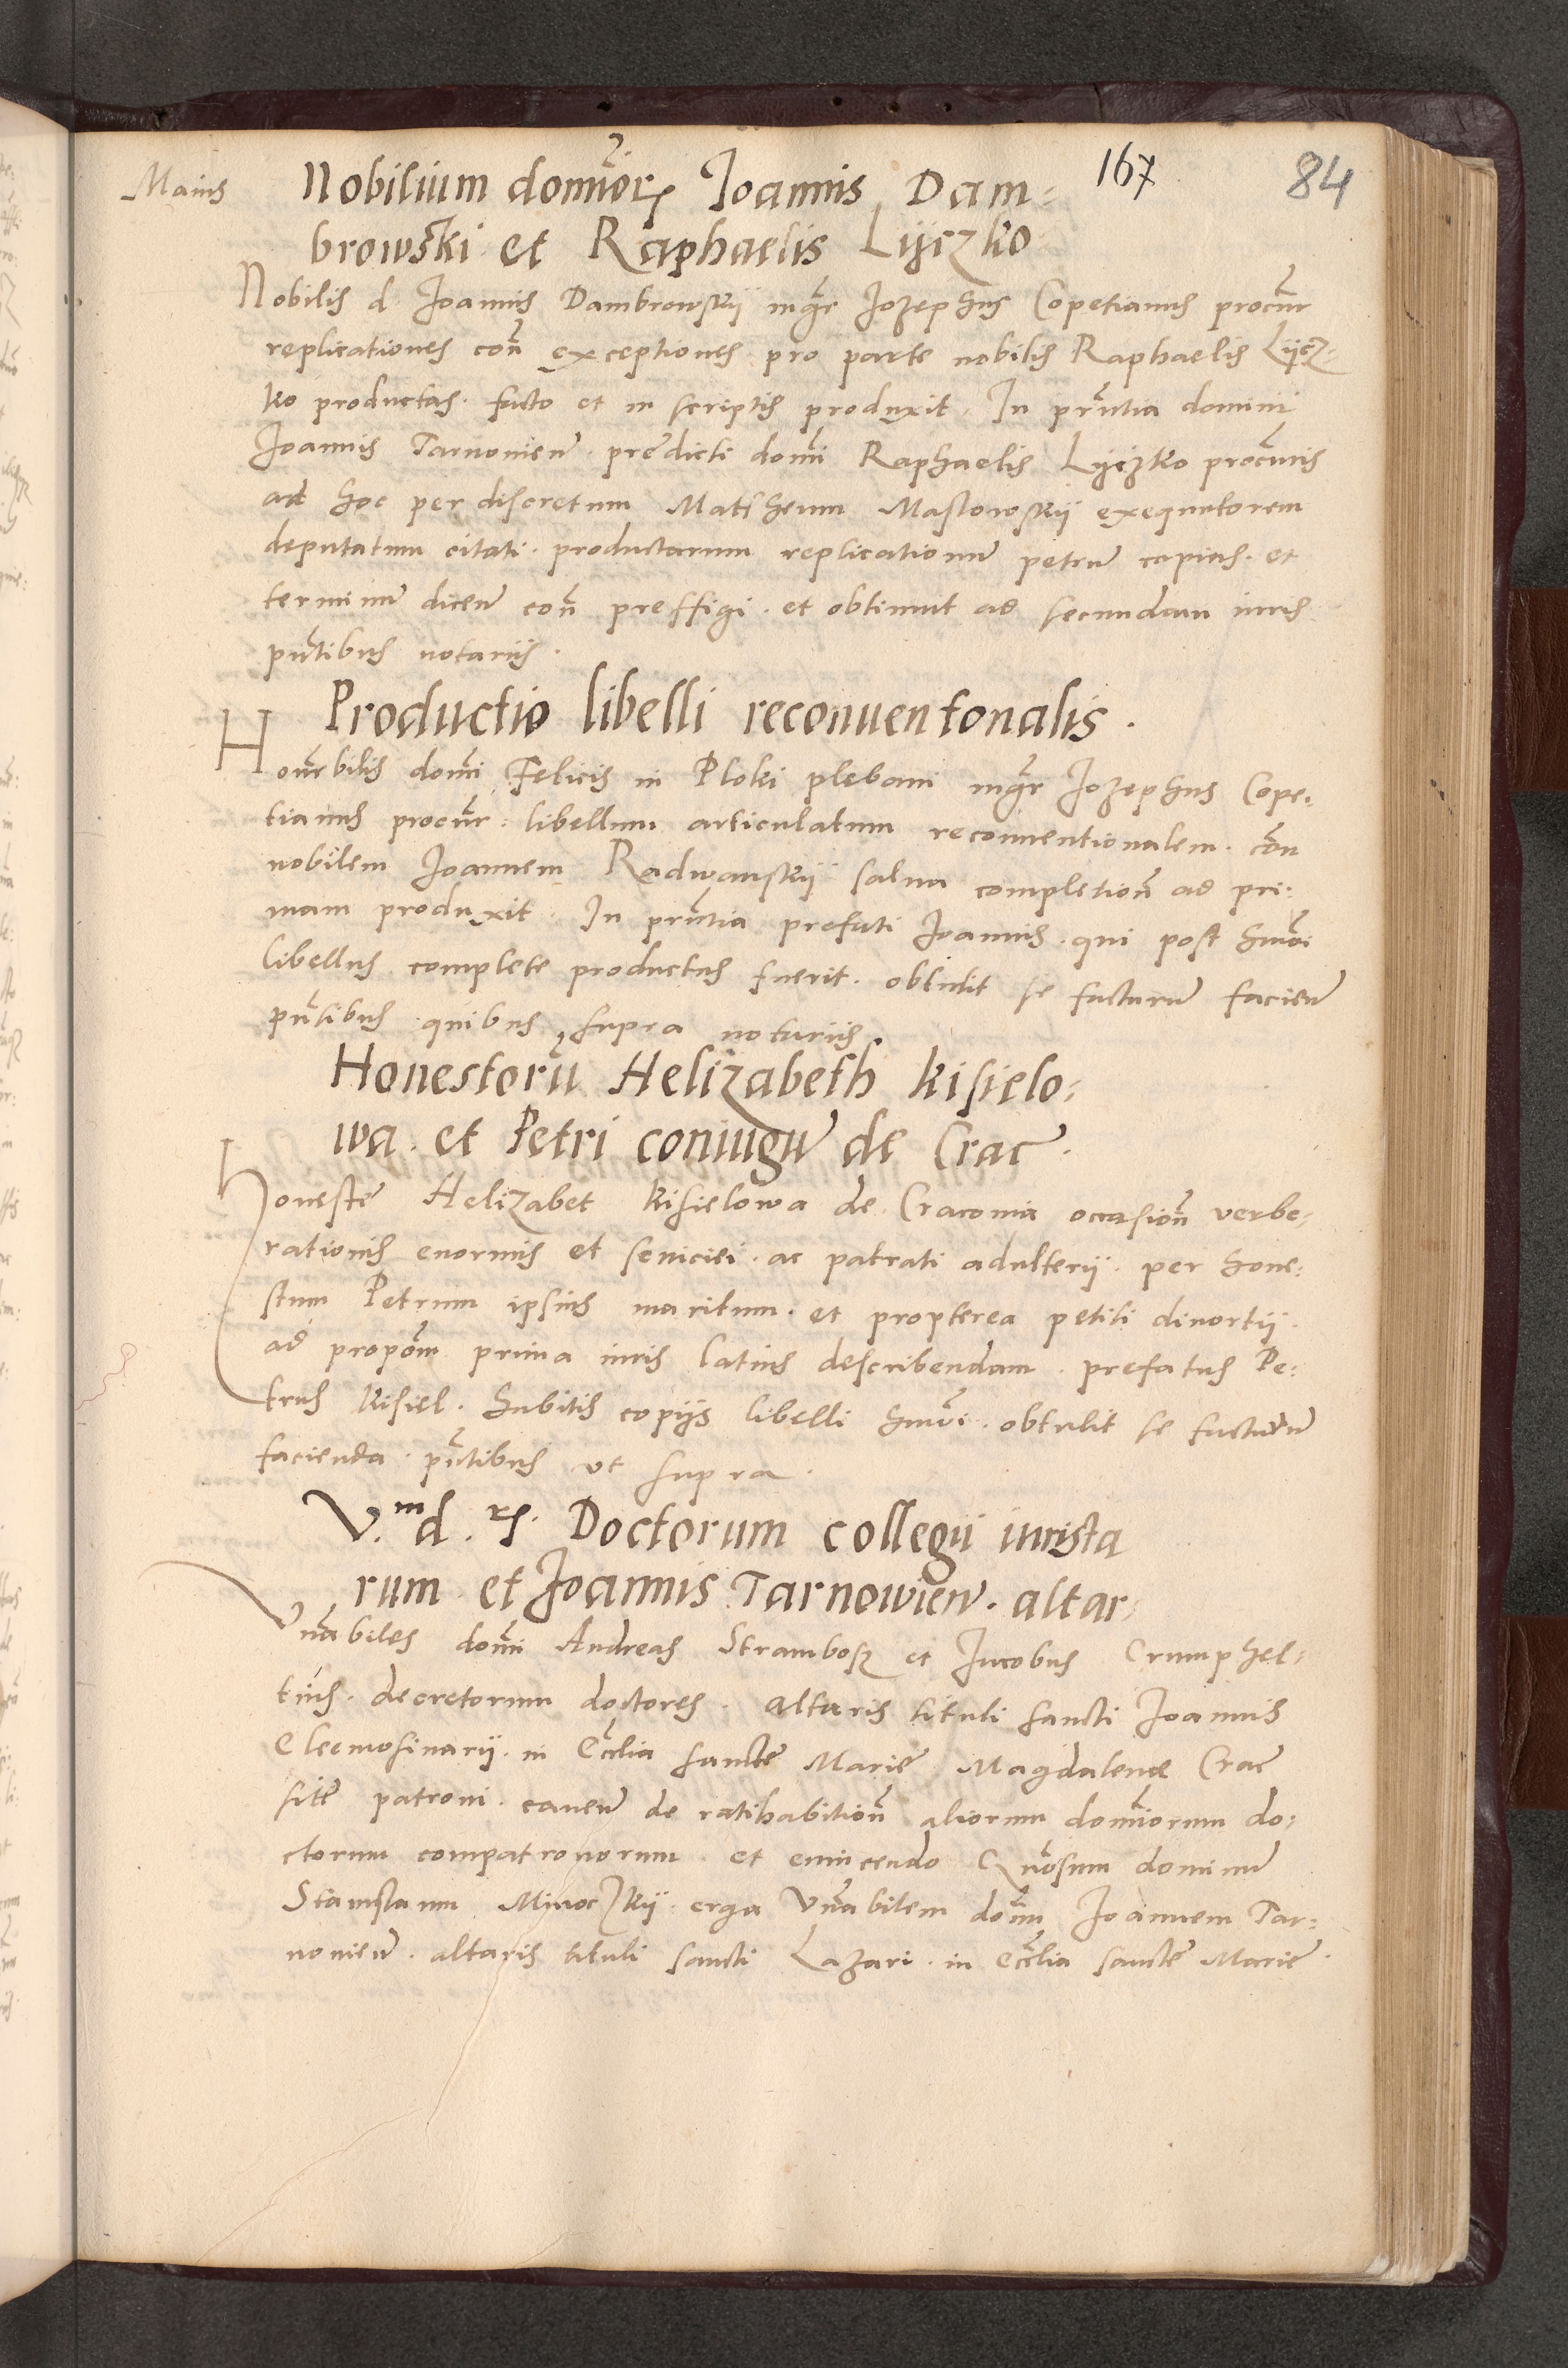 Maius
167
84
Nobilium domior Joannis Dam=
browski et Raphaelis Lyczko
Nobilis d Joannis Dambrowskÿ mgr Jozephus Copetianus procur
replicationes con exceptiones pro parte nobilis Raphaelis Lÿcz=
ko productas facto et in scriptis produxit. In prntia domini
Joannis Tarnovien predicti domi Raphaelis Lÿczko procuris
ad hoc per discretum Matheum Maslowskÿ exequutorem
deputatum citati. productarum replicationum petrum copias. et
terminum dicen con preffigi. et obtinuit ad secundam iuris
pntibus notariis.
Productio libelli reconuentonalis.
Honrbilis domi Felicis in Ploki plebani mgr Jozephus Cope=
tianus procur. libellum articulatum reconuentionalem. con
nobilem Joannem Radwanskÿ salua completion ad pri=
mam produxit. In prntia prefati Joannis. qui post humoi
libellus complete productus fuerit. obtulit se facturum facien
pntibus quibus supra notariis
Honestoru Helizabeth Kisielo=
wa. et Petri coniugu de Crac.
Honeste Helizabet Kisielowa de Cracouia occasion verbe=
rationis enormis et seuiciei. ac patrati adulterij. per hone=
stum Petrum ipsius maritum. et propterea petiti diuortij.
ad propom prima iuris latius describendam. prefatus Pe=
trus Kisiel. habitis copijs libelli humoi. obtulit se facturum
facienda. pntibus ut supra.
V.m d. r. Doctorum collegii iurista
rum. et Joannis Tarnowien. altar=
Vnabiles domi Andreas Strambosz et Jacobus Crumphel=
tius. decretorum doctores. altaris tituli sancti Joannis
Eleemosinarij. in Ecclia sancte Marie Magdalene Crac
site patroni. cauen de ratihabition aliorum dominorum do=
ctorum compatronorum. et euincendo Gnosum dominum
Stanislaum Minoczkÿ erga Vnabilem domm Joannem Tar=
nouien. altaris tituli sancti Lazari. in Ecclia sancte Marie.